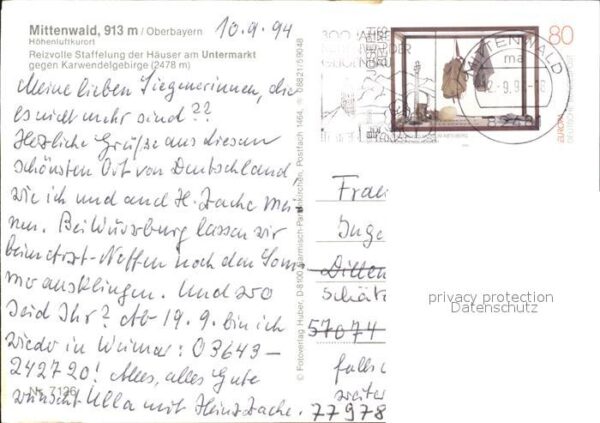 Mittenwald, 913 m / Oberbayern
Höhenluftkurort
Reizvolle Staffelung der Häuser am Untermarkt
gegen Karwendelgebirge (2478 m)
10.9.94
Meine lieben Siegenerinnen, die
es nicht mehr sind??
Herzliche Grüße aus diesem
schönsten Ort von Deutschland,
wie ich und auch H. Zache mei-
nen. Bei Würzburg lassen wir
beim Arzt-Neffen noch den Som-
mer ausklingen. Und wo
seid Ihr? Ab 19.9. bin ich
wieder in Weimar: 03643-
242720! Alles, alles Gute
wünscht Ulla mit Heinz Zache.
Nr. 7126
© Fotoverlag Huber, D-8100 Garmisch-Partenkirchen, Postfach 1464, ☎ 08821/59048
300 JAHRE
MITTENWALD
ma
-9.94-
80
EUROPA
Frau
Inge
Ditten
Schätz
57074
falls
weiter
77978
privacy protection
Datenschutz